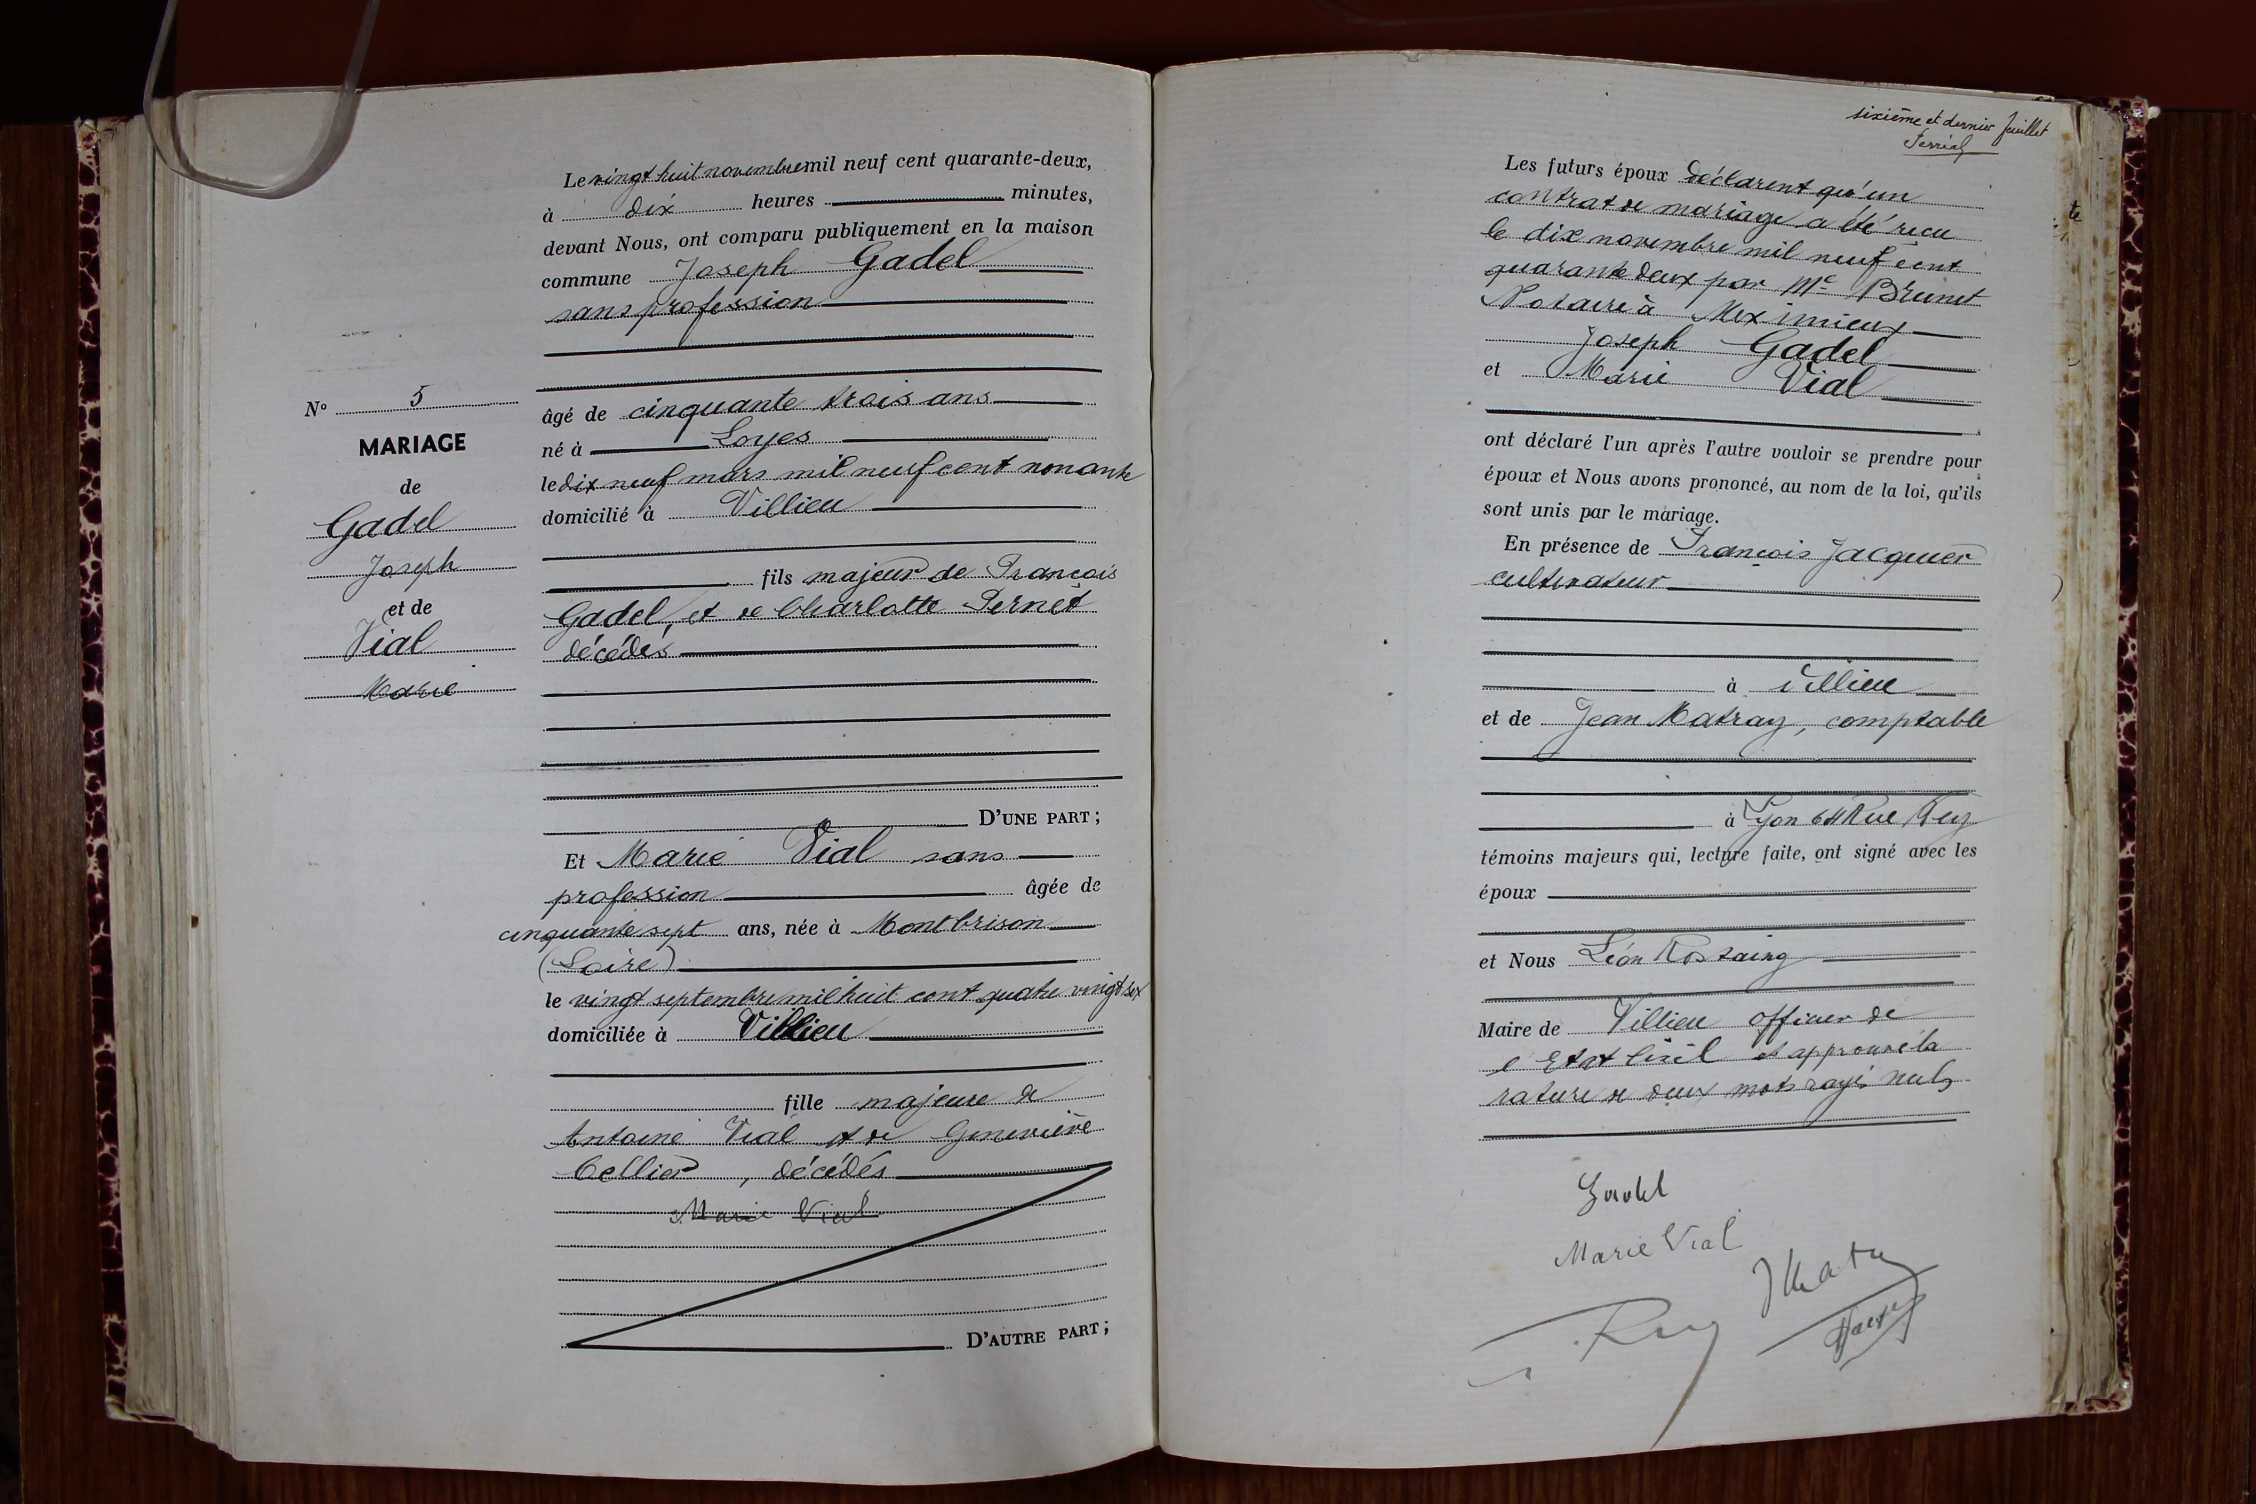 Le vingt huit novembre mil neuf cent quarante-deux,
à dix heures minutes,
devant Nous, ont comparu publiquement en la maison
commune Joseph Gadel
sans profession
N° 5
MARIAGE
de
Gadel
Joseph
et de
Vial
Marie
âgé de cinquante trois ans
né à Loyes
le dix neuf mars mil neuf cent nonante
domicilié à Villieu
fils majeur de François
Gadel, et de Charlotte Pernet
décédés
D'UNE PART ;
Et Marie Vial sans
profession âgée de
cinquante sept ans, née à Montbrison
(Loire)
le vingt septembre mil huit cent quatre vingt six
domiciliée à Villieu
fille majeure de
Antoine Vial et de Geneviève
Cellier, décédés
Marie Vial
D'AUTRE PART ;
sixième et dernier feuillet
Les futurs époux déclarent qu'un
contrat de mariage a été reçu
le dix novembre mil neuf cent
quarante deux par Me Brunet
Notaire à Meximieux
Joseph Gadel
et Marie Vial
ont déclaré l'un après l'autre vouloir se prendre pour
époux et Nous avons prononcé, au nom de la loi, qu'ils
sont unis par le mariage.
En présence de François Jacquier
cultivateur
à Villieu
et de Jean Matray, comptable
à Lyon 64 Rue Rey
témoins majeurs qui, lecture faite, ont signé avec les
époux
et Nous Léon Rostaing
Maire de Villieu officier de
l'Etat Civil et approuvé la
rature de deux mots rayés nuls
Gadel
Marie Vial